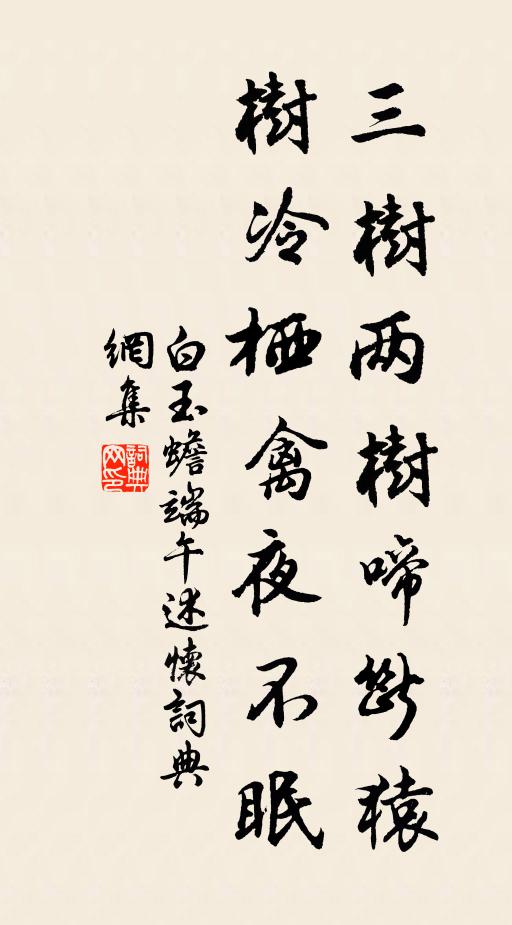 三樹两樹啼斷猿
樹冷栖禽夜不眠
白玉蟾端午述懷詞典
網集
詞典
网印